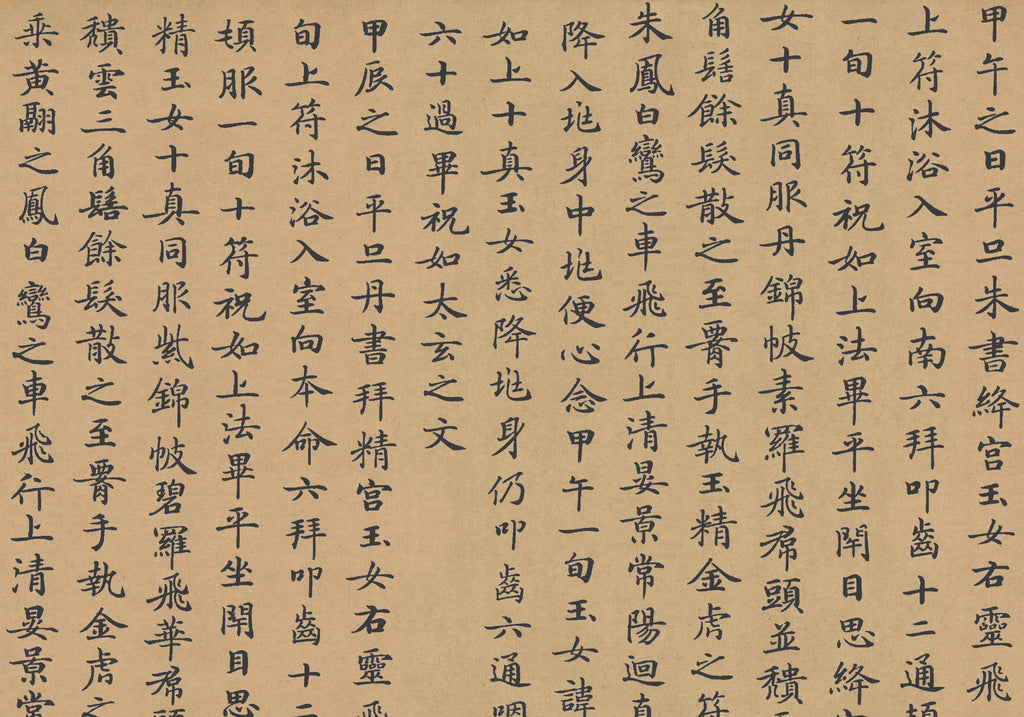 甲午之日平旦朱書絳宫玉女右靈飛
上符沐浴入室向南六拜叩齒十二通頓
一旬十符祝如上法畢平坐閇目思絳
女十真同服丹錦帔素羅飛帬頭並穨
角髻餘髮散之至腰手執玉精金虎之符
朱鳳白鸞之車飛行上清晏景常陽迴真
降入兆身中兆便心念甲午一旬玉女諱
如上十真玉女悉降兆身仍叩齒六通咽
六十過畢祝如太玄之文
甲辰之日平旦丹書拜精宫玉女右靈飛
旬上符沐浴入室向本命六拜叩齒十二
頓服一旬十符祝如上法畢平坐閇目思
精玉女十真同服紫錦帔碧羅飛華帬頭
穨雲三角髻餘髮散之至腰手執金虎之
乘黃翮之鳳白鸞之車飛行上清晏景常